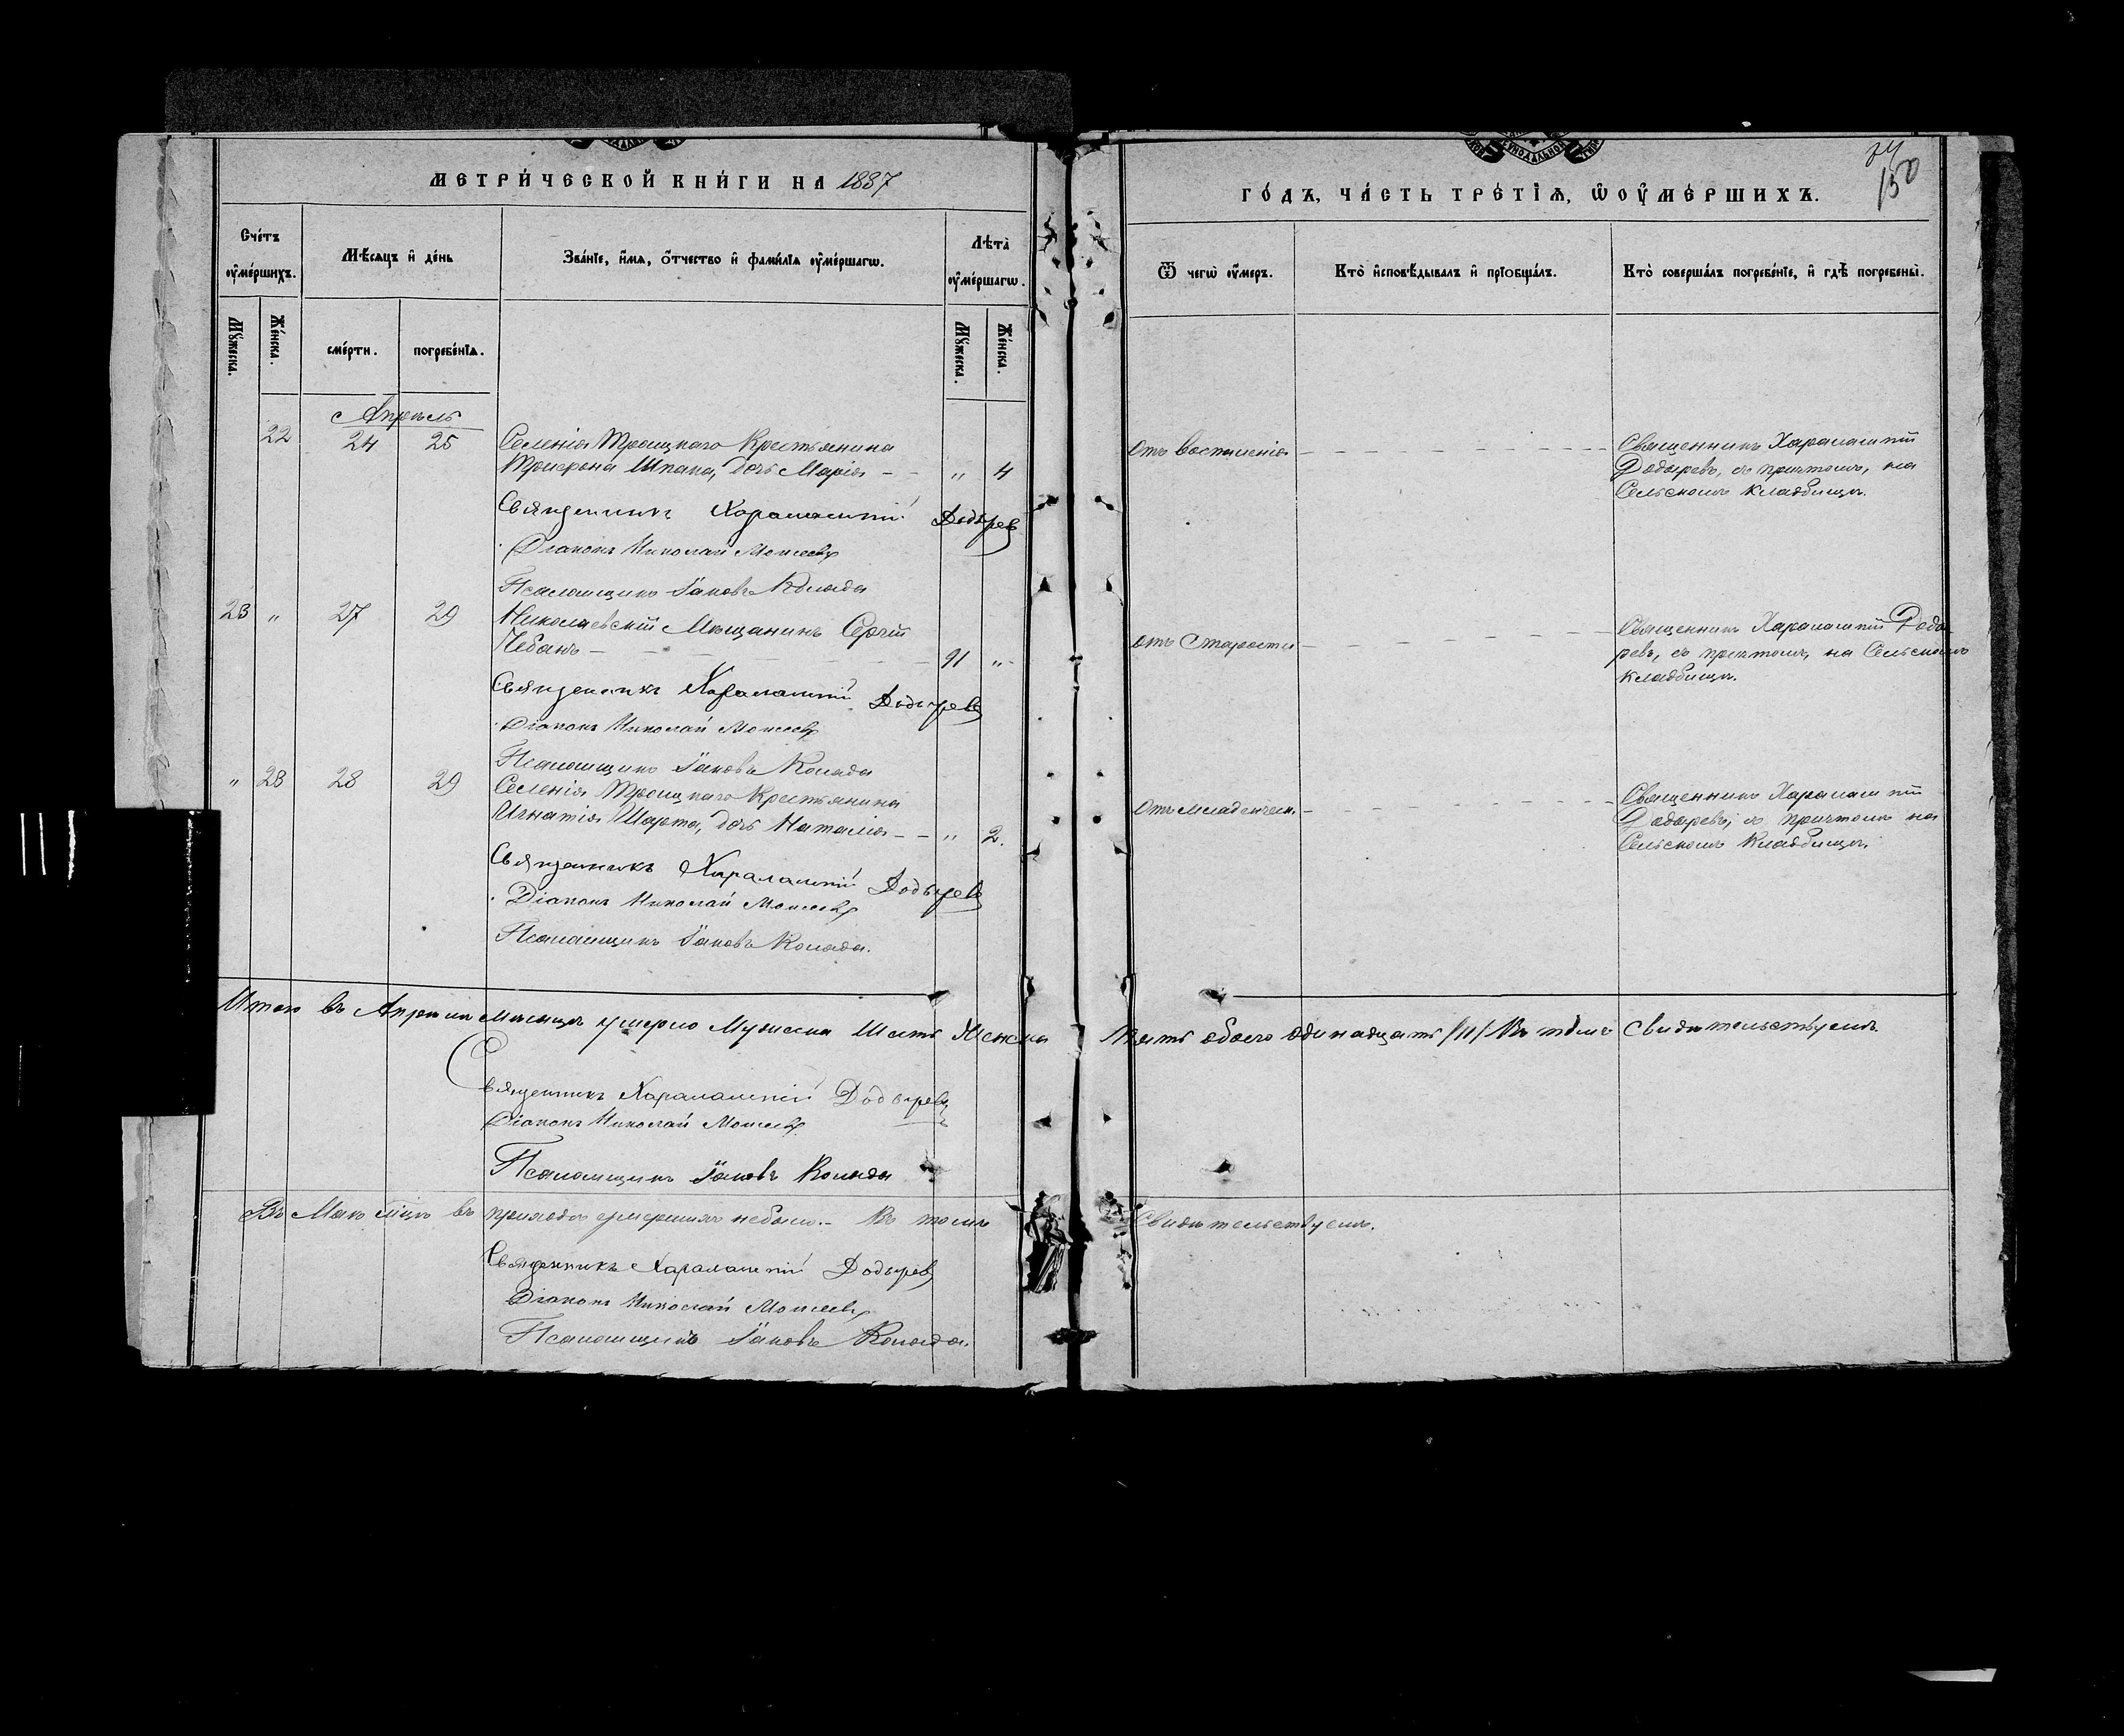 МЕТРИ́ЧЕСКОЙ КНИ́ГИ НА 1887
ГО́ДЪ, ЧА́СТЬ ТРЕ́ТІѦ, Ѡ ОУ҆МЕ́РШИХЪ.
150
Сче́тъ оу҆ме́ршихъ.
Мѣ́сяцъ и҆ де́нь
Зва́нїе, и҆́мѧ, о҆́тчество и҆ фами́лїѧ оу҆ме́ршагѡ.
Лѣта̀ оу҆ме́ршагѡ.
Ѿ чегѡ̀ оу҆́меръ.
Кто̀ и҆сповѣ́дывалъ и҆ прїобща́лъ.
Кто̀ соверша́лъ погребе́нїе, и҆ гдѣ̀ погребены̀.
Мꙋ́жеска.
Же́нска.
сме́рти.
погребе́нїѧ.
Мꙋ́жеска.
Же́нска.
Апрѣль
22 24 25 Селенія Троицкаго Крестьянина
Трифона Шпака, дочь Марія - - " 4
отъ воспаленія
Священникъ Харалампій
Додыревъ, съ причтомъ, на
Сельскомъ кладбищѣ.
Священникъ Харалампій Додырев
Діаконъ Николай Моисеевъ
Псаломщикъ Іаковъ Коляда
23 " 27 29 Николаевскій Мѣщанинъ Сергій
Чебанъ - 91 "
отъ Старости
Священникъ Харалампій Доды-
ревъ, съ причтомъ, на Сельскомъ
кладбищѣ.
Священникъ Харалампій Додырев
Діаконъ Николай Моисеевъ
Псаломщикъ Іаковъ Коляда
" 23 28 29 Селенія Троицкаго Крестьянина
Игнатія Шарта, дочь Наталія - - " 2.
Отъ младенческ.
Священникъ Харалампій
Додыревъ, съ причтомъ на
Сельскомъ Кладбищѣ.
Священникъ Харалампій Додырев
Діаконъ Николай Моисеевъ
Псаломщикъ Іаковъ Коляда.
Итого въ Апрѣлѣ мѣсяцѣ умерло Мужеска Шесть Женска Пять обоего одинадцать /11/ Въ томъ свидѣтельствуемъ
Священникъ Харалампій Додырев
Діаконъ Николай Моисеевъ
Псаломщикъ Іаковъ Коляда
Въ Маѣ мѣцѣ въ приходѣ умершихъ небыло. - Въ томъ Свидѣтельствуемъ.
Священникъ Харалампій Додырев
Діаконъ Николай Моисеевъ
Псаломщикъ Іаковъ Коляда.